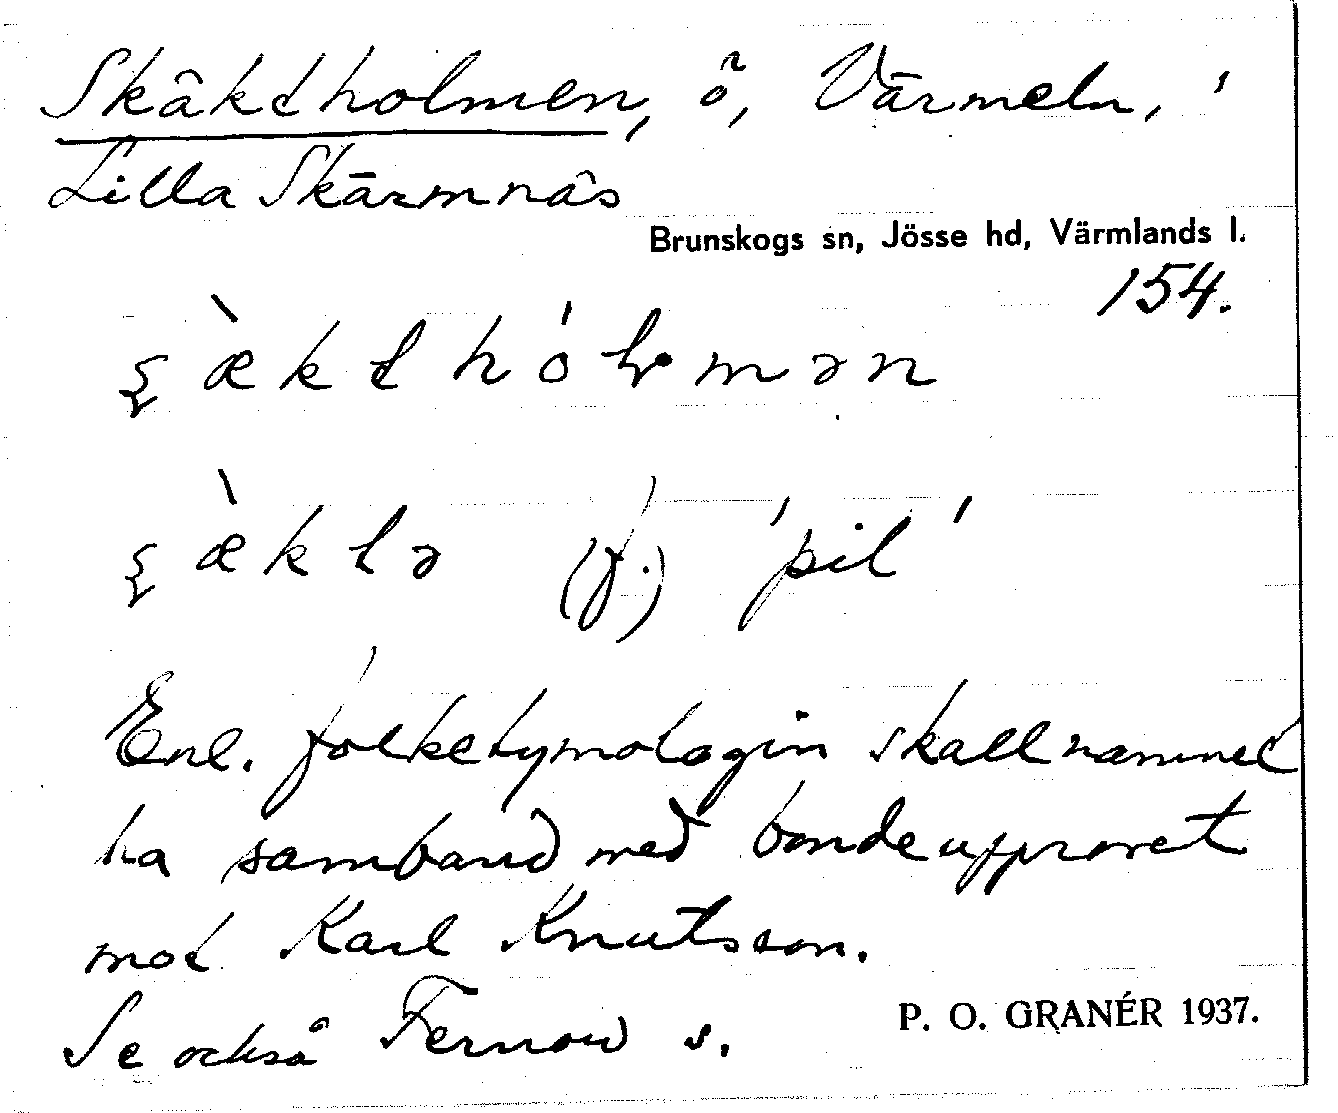 Skäktholmen, ö, Värmeln, i
Lilla Skärmnäs
Brunskogs sn, Jösse hd, Värmlands l.
154.
ʂæ̀kthólmən
ʂæ̀ktə (f.) 'pil'
Enl. folketymologin skall namnet
ha samband med bondeupproret
mot Karl Knutsson.
Se också Fernow s.
P. O. GRANÉR 1937.